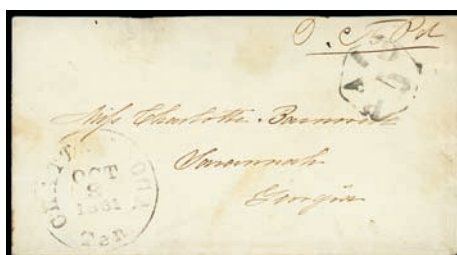 PAID
5
Miss Charlotte
Savannah
Georgia
CHATTANOOGA
OCT
3
1861
Ten.